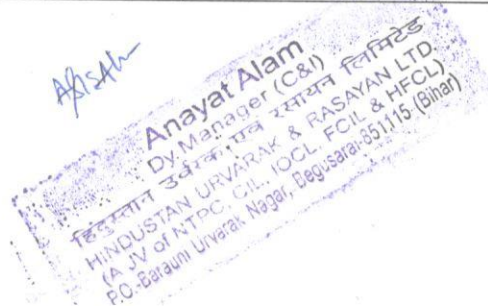 Anayat Alam
Dy. Manager (C&I)
हिंदुस्तान उर्वरक एवं रसायन लिमिटेड
HINDUSTAN URVARAK & RASAYAN LTD.
(A JV of NTPC, CIL, IOCL, FCIL & HFCL)
P.O.-Barauni Urvarak Nagar, Begusarai-851115-(Bihar)